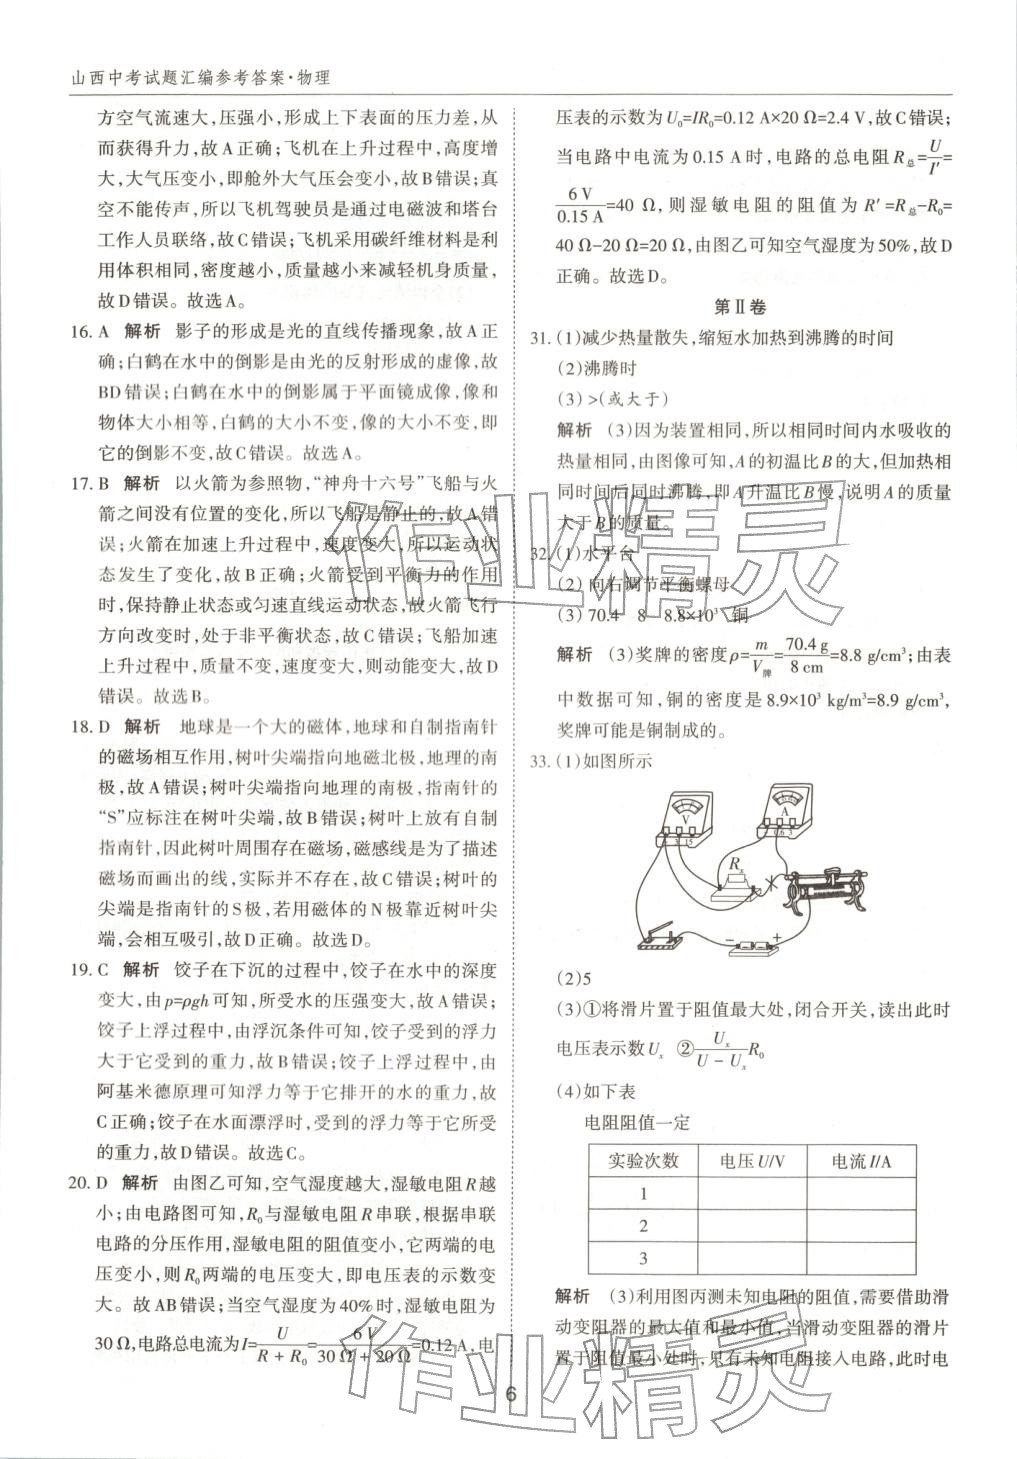 山西中考试题汇编参考答案·物理
方空气流速大,压强小,形成上下表面的压力差,从
而获得升力,故A正确;飞机在上升过程中,高度增
大,大气压变小,即舱外大气压会变小,故B错误;真
空不能传声,所以飞机驾驶员是通过电磁波和塔台
工作人员联络,故C错误;飞机采用碳纤维材料是利
用体积相同,密度越小,质量越小来减轻机身质量,
故D错误。故选A。
16. A 解析 影子的形成是光的直线传播现象,故A正
确;白鹤在水中的倒影是由光的反射形成的虚像,故
BD错误;白鹤在水中的倒影属于平面镜成像,像和
物体大小相等,白鹤的大小不变,像的大小不变,即
它的倒影不变,故C错误。故选A。
17. B 解析 以火箭为参照物,“神舟十六号”飞船与火
箭之间没有位置的变化,所以飞船是静止的,故A错
误;火箭在加速上升过程中,速度变大,所以运动状
态发生了变化,故B正确;火箭受到平衡力的作用
时,保持静止状态或匀速直线运动状态,故火箭飞行
方向改变时,处于非平衡状态,故C错误;飞船加速
上升过程中,质量不变,速度变大,则动能变大,故D
错误。故选B。
18. D 解析 地球是一个大的磁体,地球和自制指南针
的磁场相互作用,树叶尖端指向地磁北极,地理的南
极,故A错误;树叶尖端指向地理的南极,指南针的
“S”应标注在树叶尖端,故B错误;树叶上放有自制
指南针,因此树叶周围存在磁场,磁感线是为了描述
磁场而画出的线,实际并不存在,故C错误;树叶的
尖端是指南针的S极,若用磁体的N极靠近树叶尖
端,会相互吸引,故D正确。故选D。
19. C 解析 饺子在下沉的过程中,饺子在水中的深度
变大,由p=ρgh可知,所受水的压强变大,故A错误;
饺子上浮过程中,由浮沉条件可知,饺子受到的浮力
大于它受到的重力,故B错误;饺子上浮过程中,由
阿基米德原理可知浮力等于它排开的水的重力,故
C正确;饺子在水面漂浮时,受到的浮力等于它所受
的重力,故D错误。故选C。
20. D 解析 由图乙可知,空气湿度越大,湿敏电阻R越
小;由电路图可知,R₀与湿敏电阻R串联,根据串联
电路的分压作用,湿敏电阻的阻值变小,它两端的电
压变小,则R₀两端的电压变大,即电压表的示数变
大。故AB错误;当空气湿度为40%时,湿敏电阻为
30 Ω,电路总电流为I=U/(R+R₀)=6 V/(30 Ω+20 Ω)=0.12 A,电
压表的示数为U₀=IR₀=0.12 A×20 Ω=2.4 V,故C错误;
当电路中电流为0.15 A时,电路的总电阻R总=U/I′=
6 V/0.15 A=40 Ω,则湿敏电阻的阻值为R′=R总-R₀=
40 Ω-20 Ω=20 Ω,由图乙可知空气湿度为50%,故D
正确。故选D。
第Ⅱ卷
31. (1)减少热量散失,缩短水加热到沸腾的时间
(2)沸腾时
(3)>(或大于)
解析 (3)因为装置相同,所以相同时间内水吸收的
热量相同,由图像可知,A的初温比B的大,但加热相
同时间后同时沸腾,即A升温比B慢,说明A的质量
大于B的质量。
32. (1)水平台
(2)向右调节平衡螺母
(3)70.4 8 8.8×10³ 铜
解析 (3)奖牌的密度ρ=m/V牌=70.4 g/8 cm=8.8 g/cm³;由表
中数据可知,铜的密度是8.9×10³ kg/m³=8.9 g/cm³,
奖牌可能是铜制成的。
33. (1)如图所示
V
A
Rₓ
- +
(2)5
(3)①将滑片置于阻值最大处,闭合开关,读出此时
电压表示数Uₓ ②Uₓ/(U-Uₓ)R₀
(4)如下表
电阻阻值一定
实验次数 电压U/V 电流I/A
1
2
3
解析 (3)利用图丙测未知电阻的阻值,需要借助滑
动变阻器的最大值和最小值,当滑动变阻器的滑片
置于阻值最小处时,只有未知电阻接入电路,此时电
6
作业精灵
作业精灵